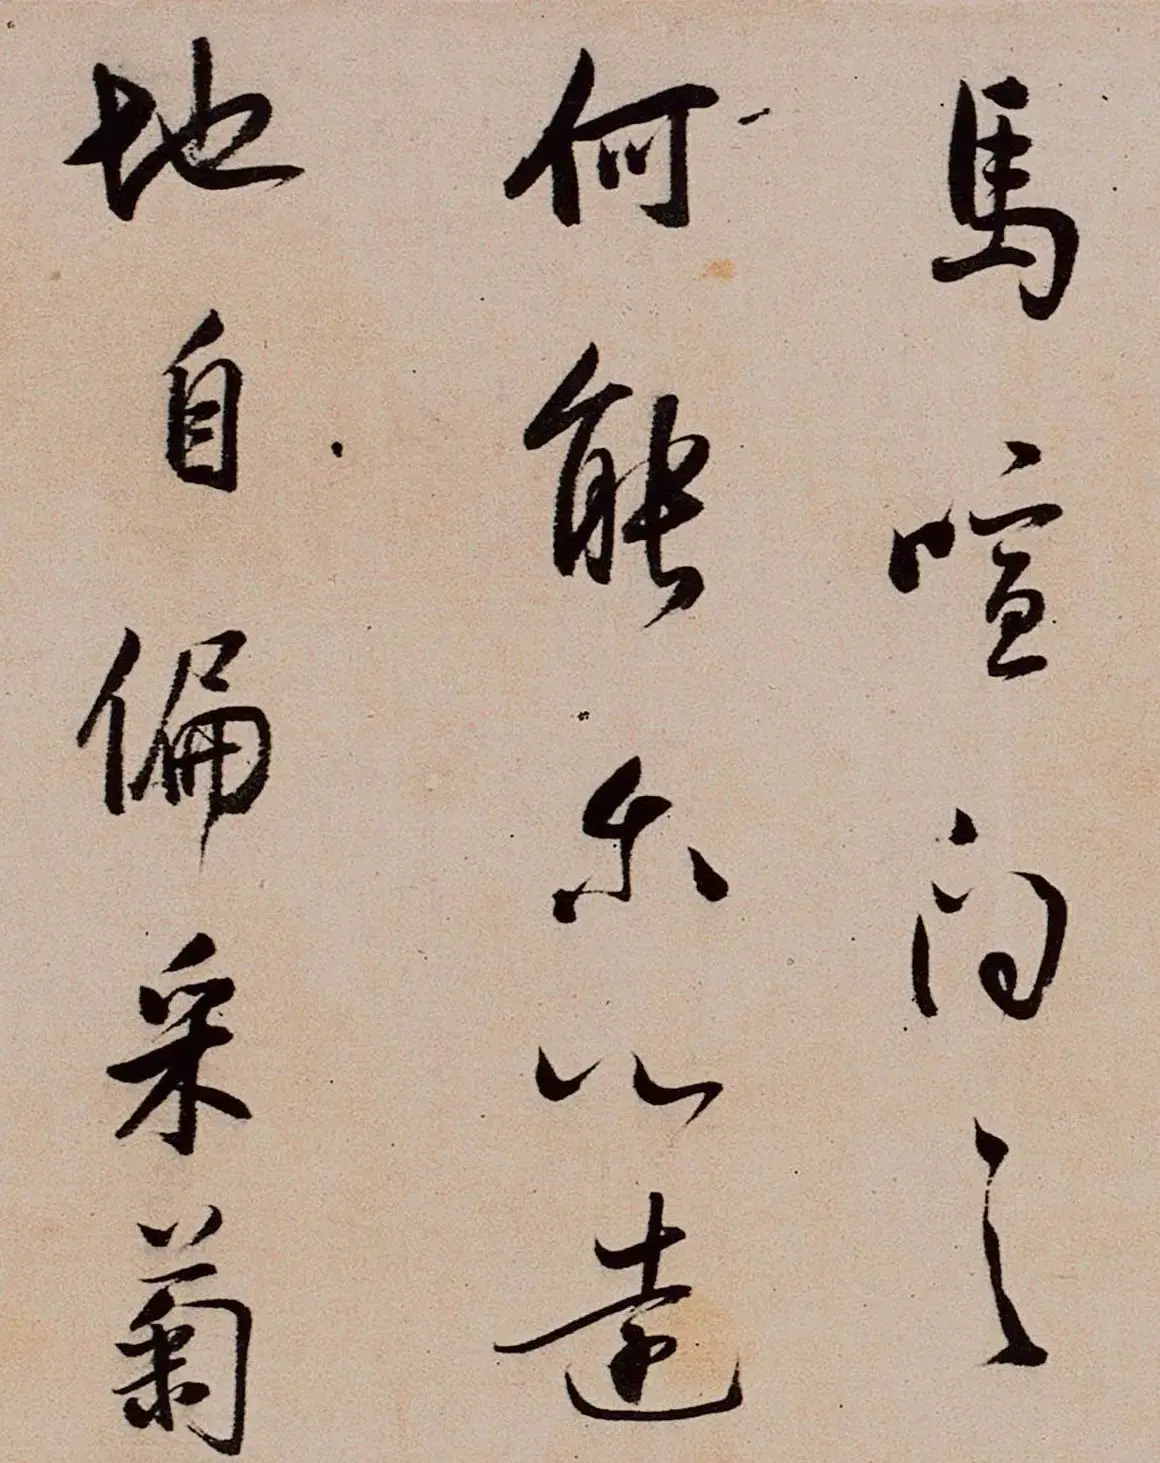 馬喧問之
何能尔心遠
地自偏采菊